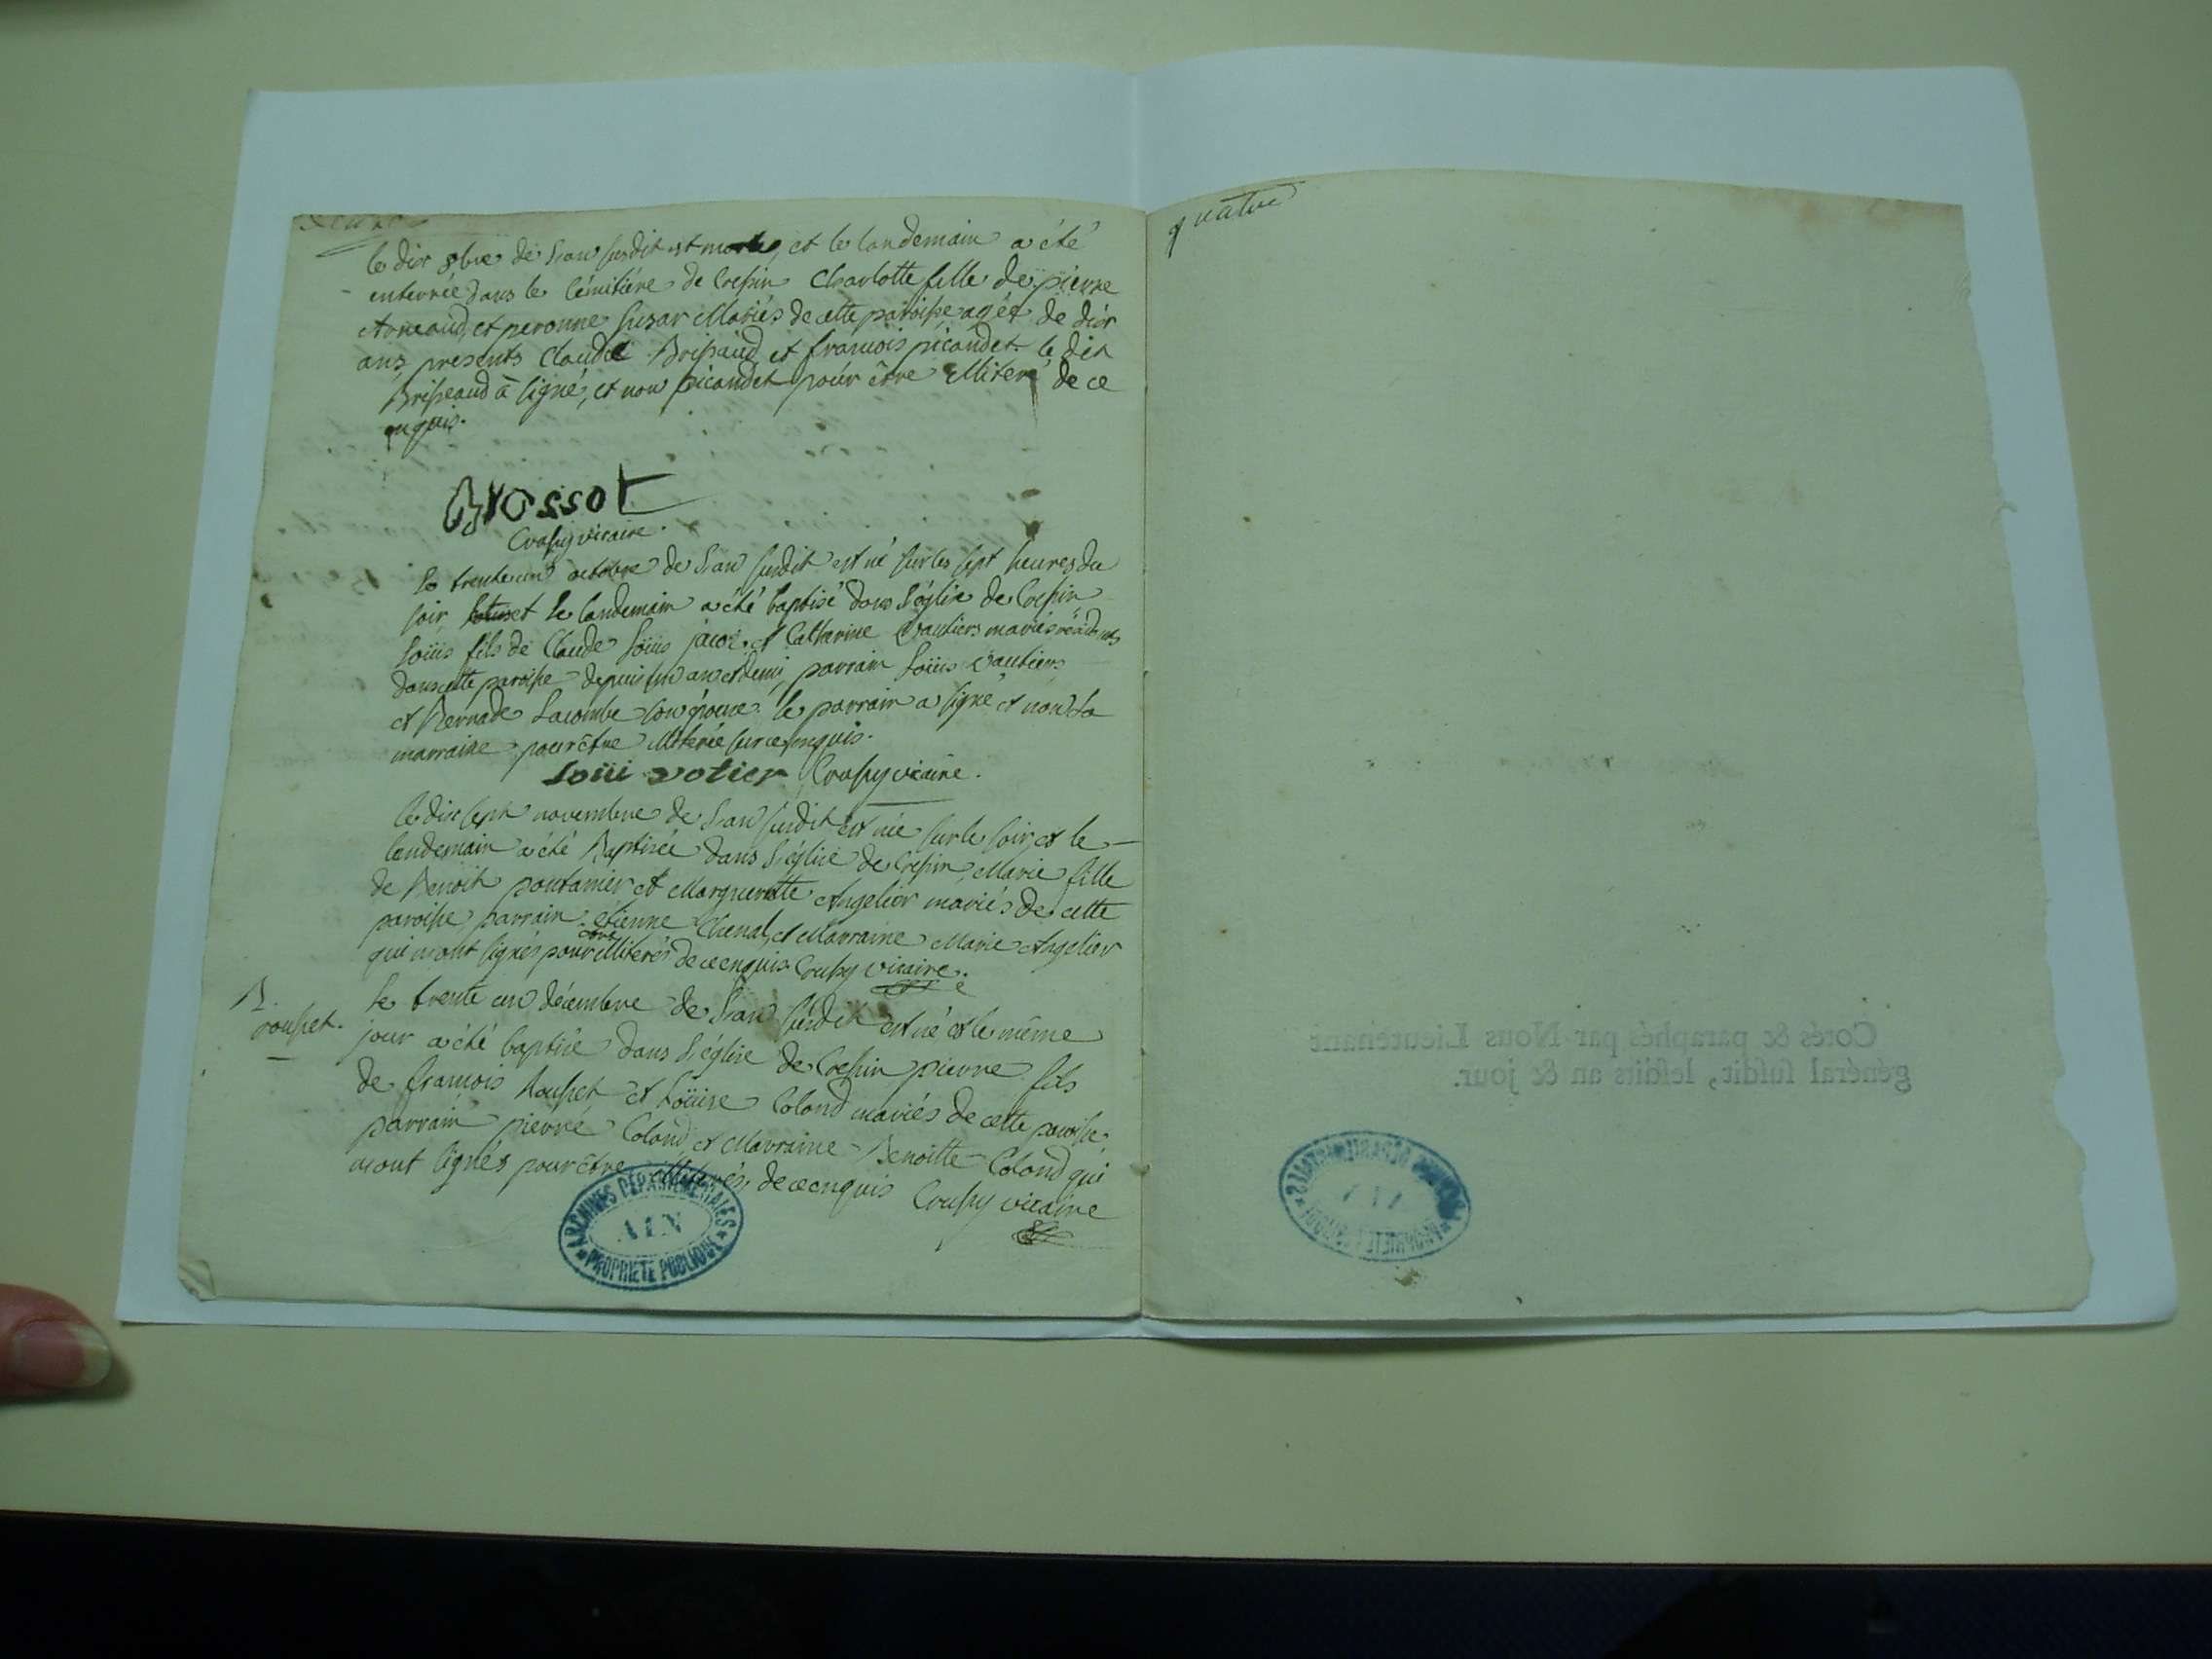 le dix 8bre de l'an susdit est morte, et le landemain a été
enterrée dans le cémitiére de Cressin Charlotte fille de pierre
et peronne Suzar Mariés de cette paroisse agée de dix
ans, presents Claude et francois picandet le dit
à signé, et non picandet pour être illiteré de ce
enquis.
Crussy vicaire.
le trente un octobre de l'an susdit est né sur les sept heures du
soir et le landemain a été baptisé dans l'église de Cressin
Loüis fils de Claude Loüis et Catharine Vautiers mariés résidents
dans cette paroisse depuis un an et demi, parrain Loüis Vautiers
et Bernade Lacombe le parrain a signé et non la
marraine pour être illiterée sur ce enquis.
Loüi votier Crussy vicaire.
le dix sept novembre de l'an susdit est née sur le soir, et le
landemain a été Baptisée dans l'église de Cressin, Marie fille
de Benoit pontanier et Margueritte Angelier mariés de cette
paroisse parrain étienne Chenal, et Marraine Marie Angelier
qui n'ont signés pour être illiterés de ce enquis Crussy vicaire.
B.
rousset.
le trente un décembre de l'an susdit est né et le même
jour a été baptisé dans l'église de Cressin pierre fils
de francois Rousset et Loüise Colond mariés de cette paroisse.
parrain pierre Colond et Marraine Benoitte Colond qui
n'ont signés pour être illiterés, de ce enquis Crussy vicaire
ARCHIVES DÉPARTEMENTALES
AIN
PROPRIÉTÉ PUBLIQUE
quatre
Cotés & paraphés par Nous Lieutenant
général susdit, lesdits an & jour.